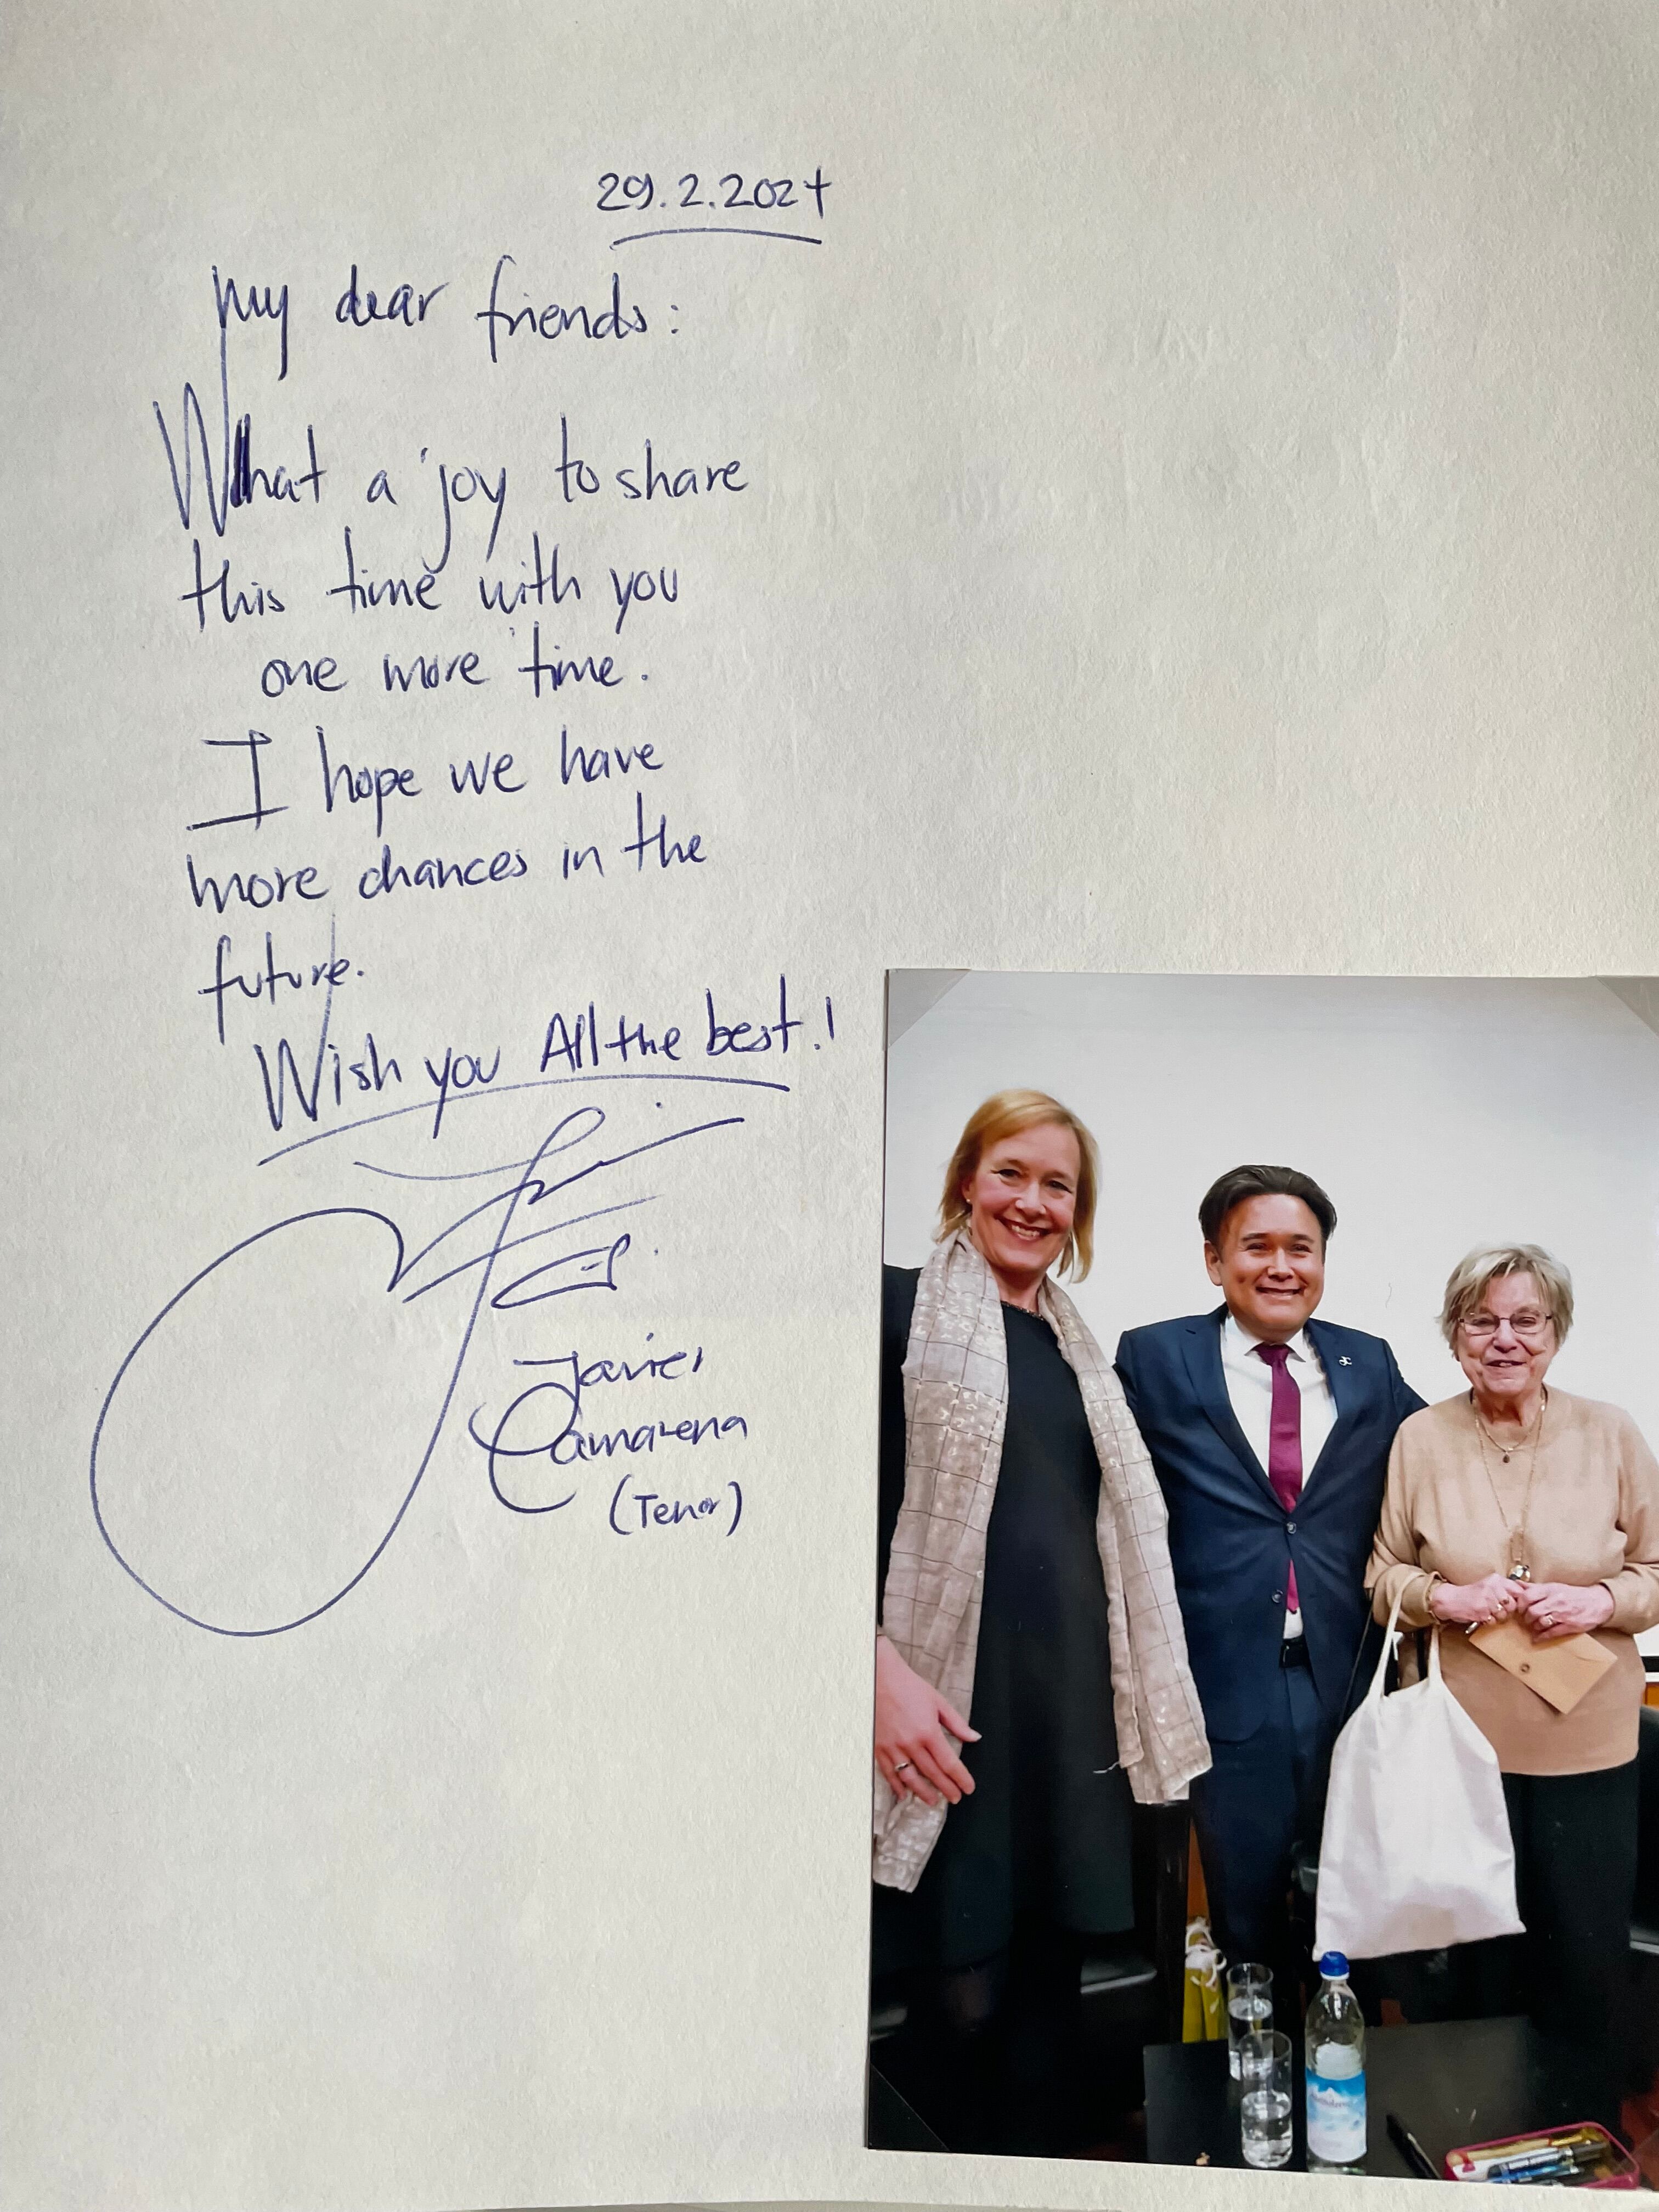 29.2.2024
My dear friends:
What a joy to share
this time with you
one more time.
I hope we have
more chances in the
future.
Wish you All the best.!
Javier
Camarena
(Tenor)